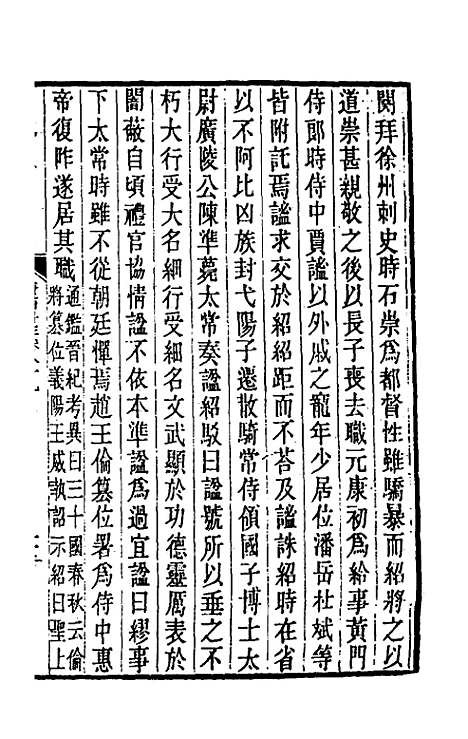 闋拜徐州刺史時石崇爲都督性雖驕暴而紹將之以
道崇甚親敬之後以長子喪去職元康初爲給事黃門
侍郎時侍中賈謐以外戚之寵年少居位潘岳杜斌等
皆附託焉謐求交於紹紹距而不荅及謐誅紹時在省
以不阿比凶族封弋陽子遷散騎常侍領國子博士太
尉廣陵公陳準薨太常奏諡紹駁曰諡號所以垂之不
朽大行受大名細行受細名文武顯於功德靈厲表於
闇蔽自頃禮官協情諡不依本準諡爲過宜諡曰繆事
下太常時雖不從朝廷憚焉趙王倫篡位署爲侍中惠
帝復阼遂居其職
通鑑晉紀考異曰三十國春秋云倫
將篡位義陽王威執詔示紹曰聖上